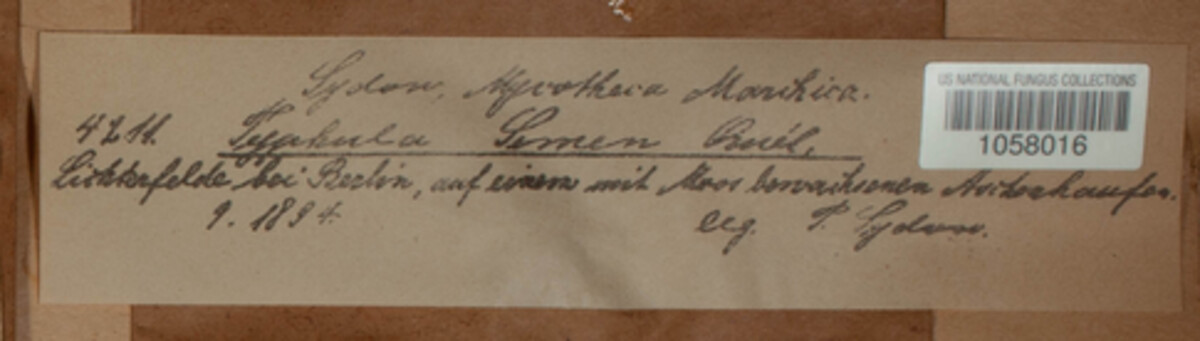 Sydow, Mycotheca Marchica.
US NATIONAL FUNGUS COLLECTIONS
1058016
4211. Typhula Semen Quél.
Lichterfelde bei Berlin, auf einem mit Moos bewachsenen Aschenhaufen.
9. 1894. leg. P. Sydow.